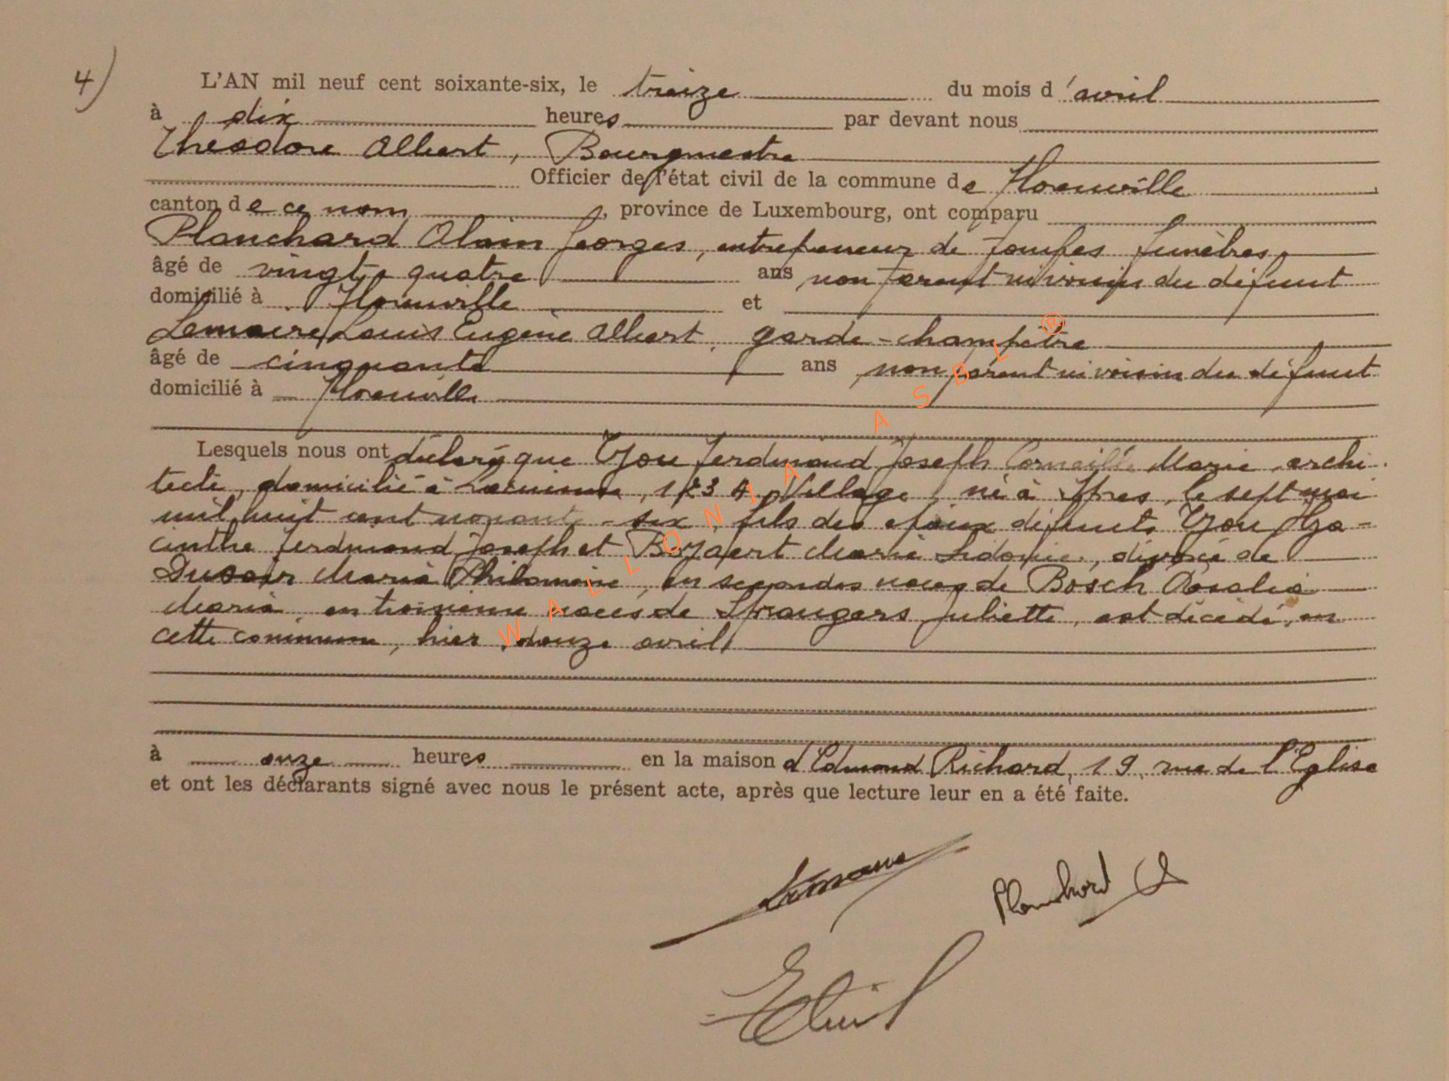 4)
L'AN mil neuf cent soixante-six, le treize du mois d'avril
à dix heures par devant nous
Théodore Albert, Bourgmestre
Officier de l'état civil de la commune de Florenville
canton de ce nom, province de Luxembourg, ont comparu
Planchard Alain Georges, entrepreneur de pompes funèbres,
âgé de vingt quatre ans non parent ni voisin du défunt
domicilié à Florenville et
Lemaire Louis Eugène Albert, garde-champêtre
âgé de cinquante ans, non parent ni voisin du défunt
domicilié à Florenville
Lesquels nous ont déclaré que Gou Ferdinand Joseph Corneille Marie archi-
tecte, domicilié à Lacuisine, 123 A, Village, né à Ypres, le sept mai
mil huit cent nonante-six, fils des époux défunts Gou Hya-
cinthe Ferdinand Joseph et Bryaert Marie Sidonie, divorcé de
Marie Philomène, en secondes noces de Bosch Rosalie
Maria en troisième noces de Juliette, est décédé, en
cette commune, hier douze avril,
à onze heures en la maison d'Edmond Richard, 19, rue de l'Eglise
et ont les déclarants signé avec nous le présent acte, après que lecture leur en a été faite.
Lemaire
Planchard A
WALLONIA ASBL ®